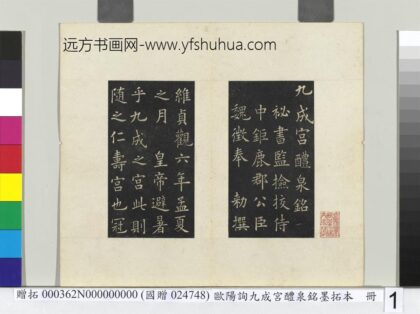 远方书画网-www.yfshuhua.com
九成宮醴泉銘
祕書監撿挍侍
中鉅鹿郡公臣
魏徵奉 勑撰
維貞觀六年孟夏
之月 皇帝避暑
乎九成之宮此則
随之仁壽宮也冠
贈拓 000362N000000000 (國贈 024748) 歐陽詢九成宮醴泉銘墨拓本 冊
1